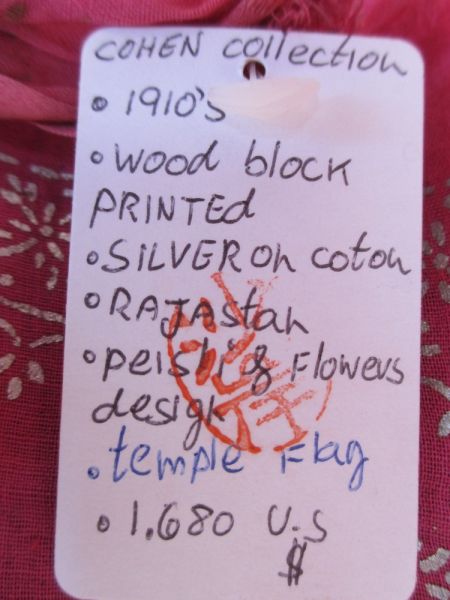 COHEN collection
• 1910's
• wood block
PRINTEd
• SILVER on coton
• RAJAstan
• peisli & Flowers
design
• temple Flag
• 1.680 U.S
$